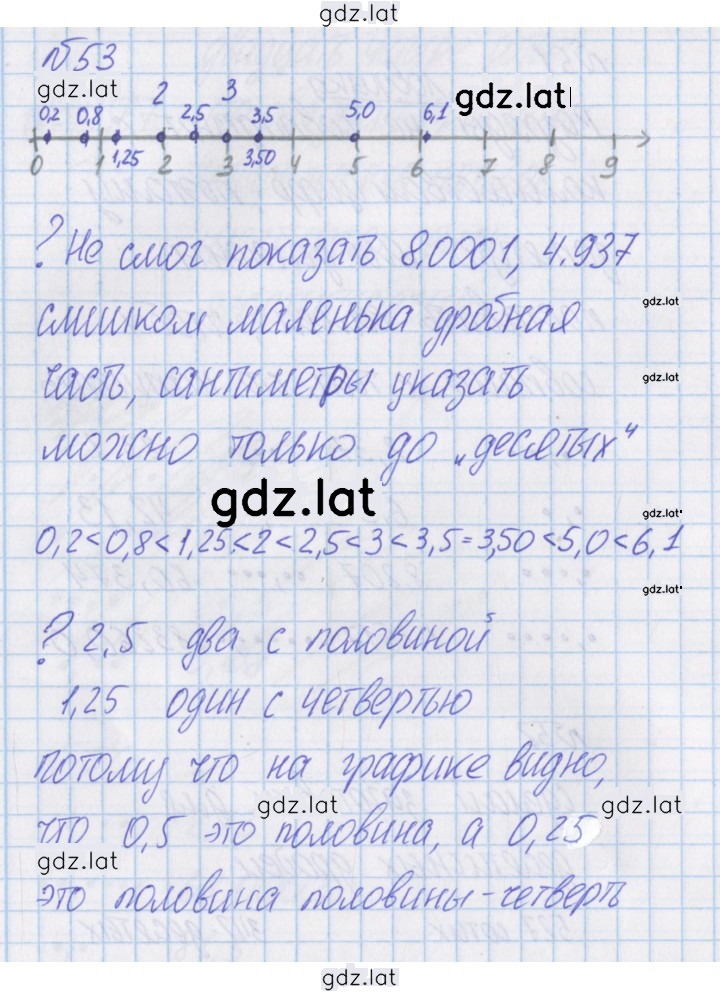 gdz.lat
№53
gdz.lat
2 3 gdz.lat
0,2 0,8 2,5 3,5 5,0 6,1
0 1 1,25 2 3 3,50 4 5 6 7 8 9
? Не смог показать 8.0001, 4.937
слишком маленька дробная
gdz.lat
часть, сантиметры указать
gdz.lat
можно только до „десятых"
gdz.lat
gdz.lat
0,2<0,8<1,25<2<2,5<3<3,5=3,50<5,0<6,1
gdz.lat
? 2,5 два с половиной
1,25 один с четвертью
потому что на графике видно,
gdz.lat gdz.lat
что 0,5 это половина, а 0,25
gdz.lat
это половина половины-четверть
gdz.lat